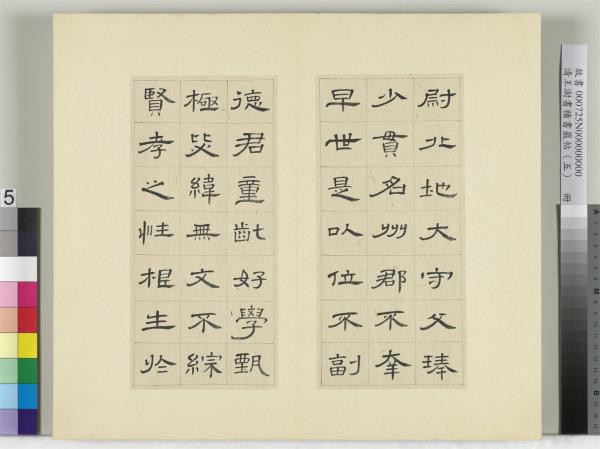 尉北地大守父琫
少貫名州郡不幸
早世是以位不副
德君童齔好學甄
極毖緯無文不綜
賢孝之性根生於
故書000725N000000000
清王澍書積書巖帖(五) 冊
5
A
M
B